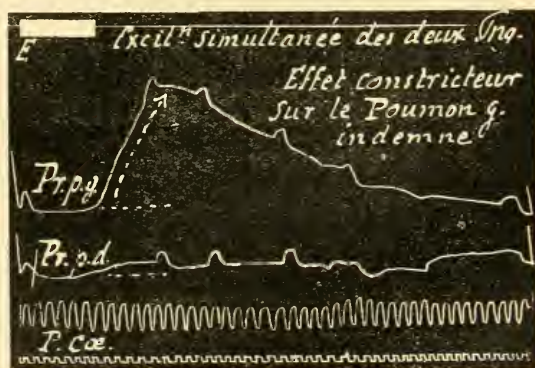 E Excit.n simultanée des deux Png.
Effet constricteur
sur le Poumon g.
indemne
Pr.p.g.
Pr.p.d.
P. Cœ.